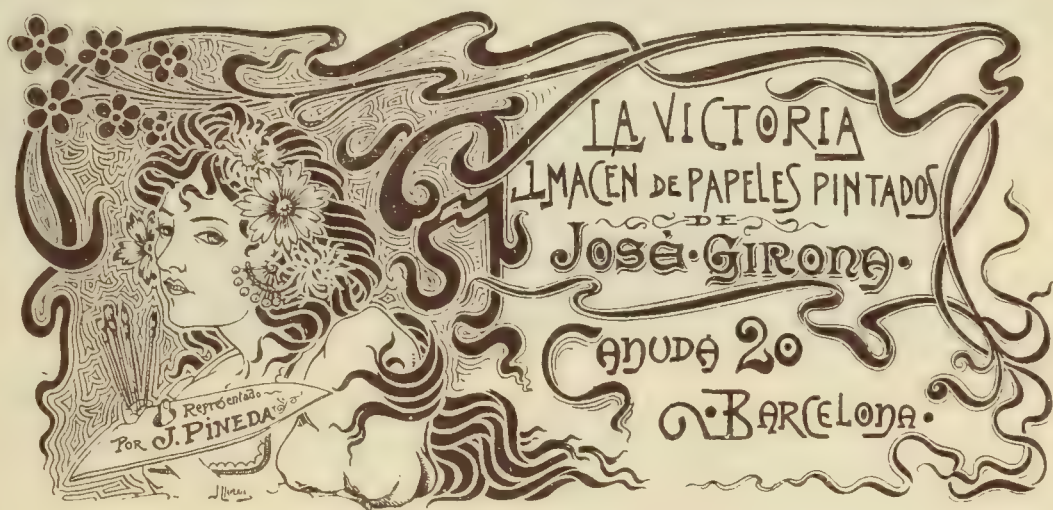 LA VICTORIA
ALMACEN DE PAPELES PINTADOS
DE
JOSÈ · GIRONA ·
CANUDA 20
· BARCELONA ·
Representado
POR J. PINEDA